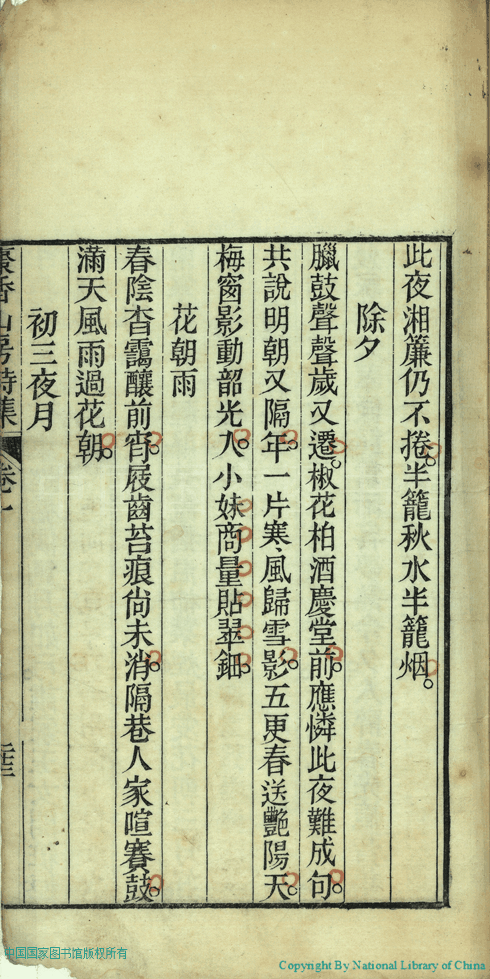 此夜湘簾仍不捲。半籠秋水半籠烟。
除夕
臘鼓聲聲歲又遷。椒花柏酒慶堂前。應憐此夜難成句。
共說明朝又隔年。一片寒風歸雪影。五更春送艷陽天。
梅窗影動韶光入。小妹商量貼翠鈿。
花朝雨
春陰杳靄釀前宵。屐齒苔痕尙未消。隔巷人家喧賽鼓。
滿天風雨過花朝。
初三夜月
香山房詩集
中国国家图书馆版权所有
Copyright By National Library of China